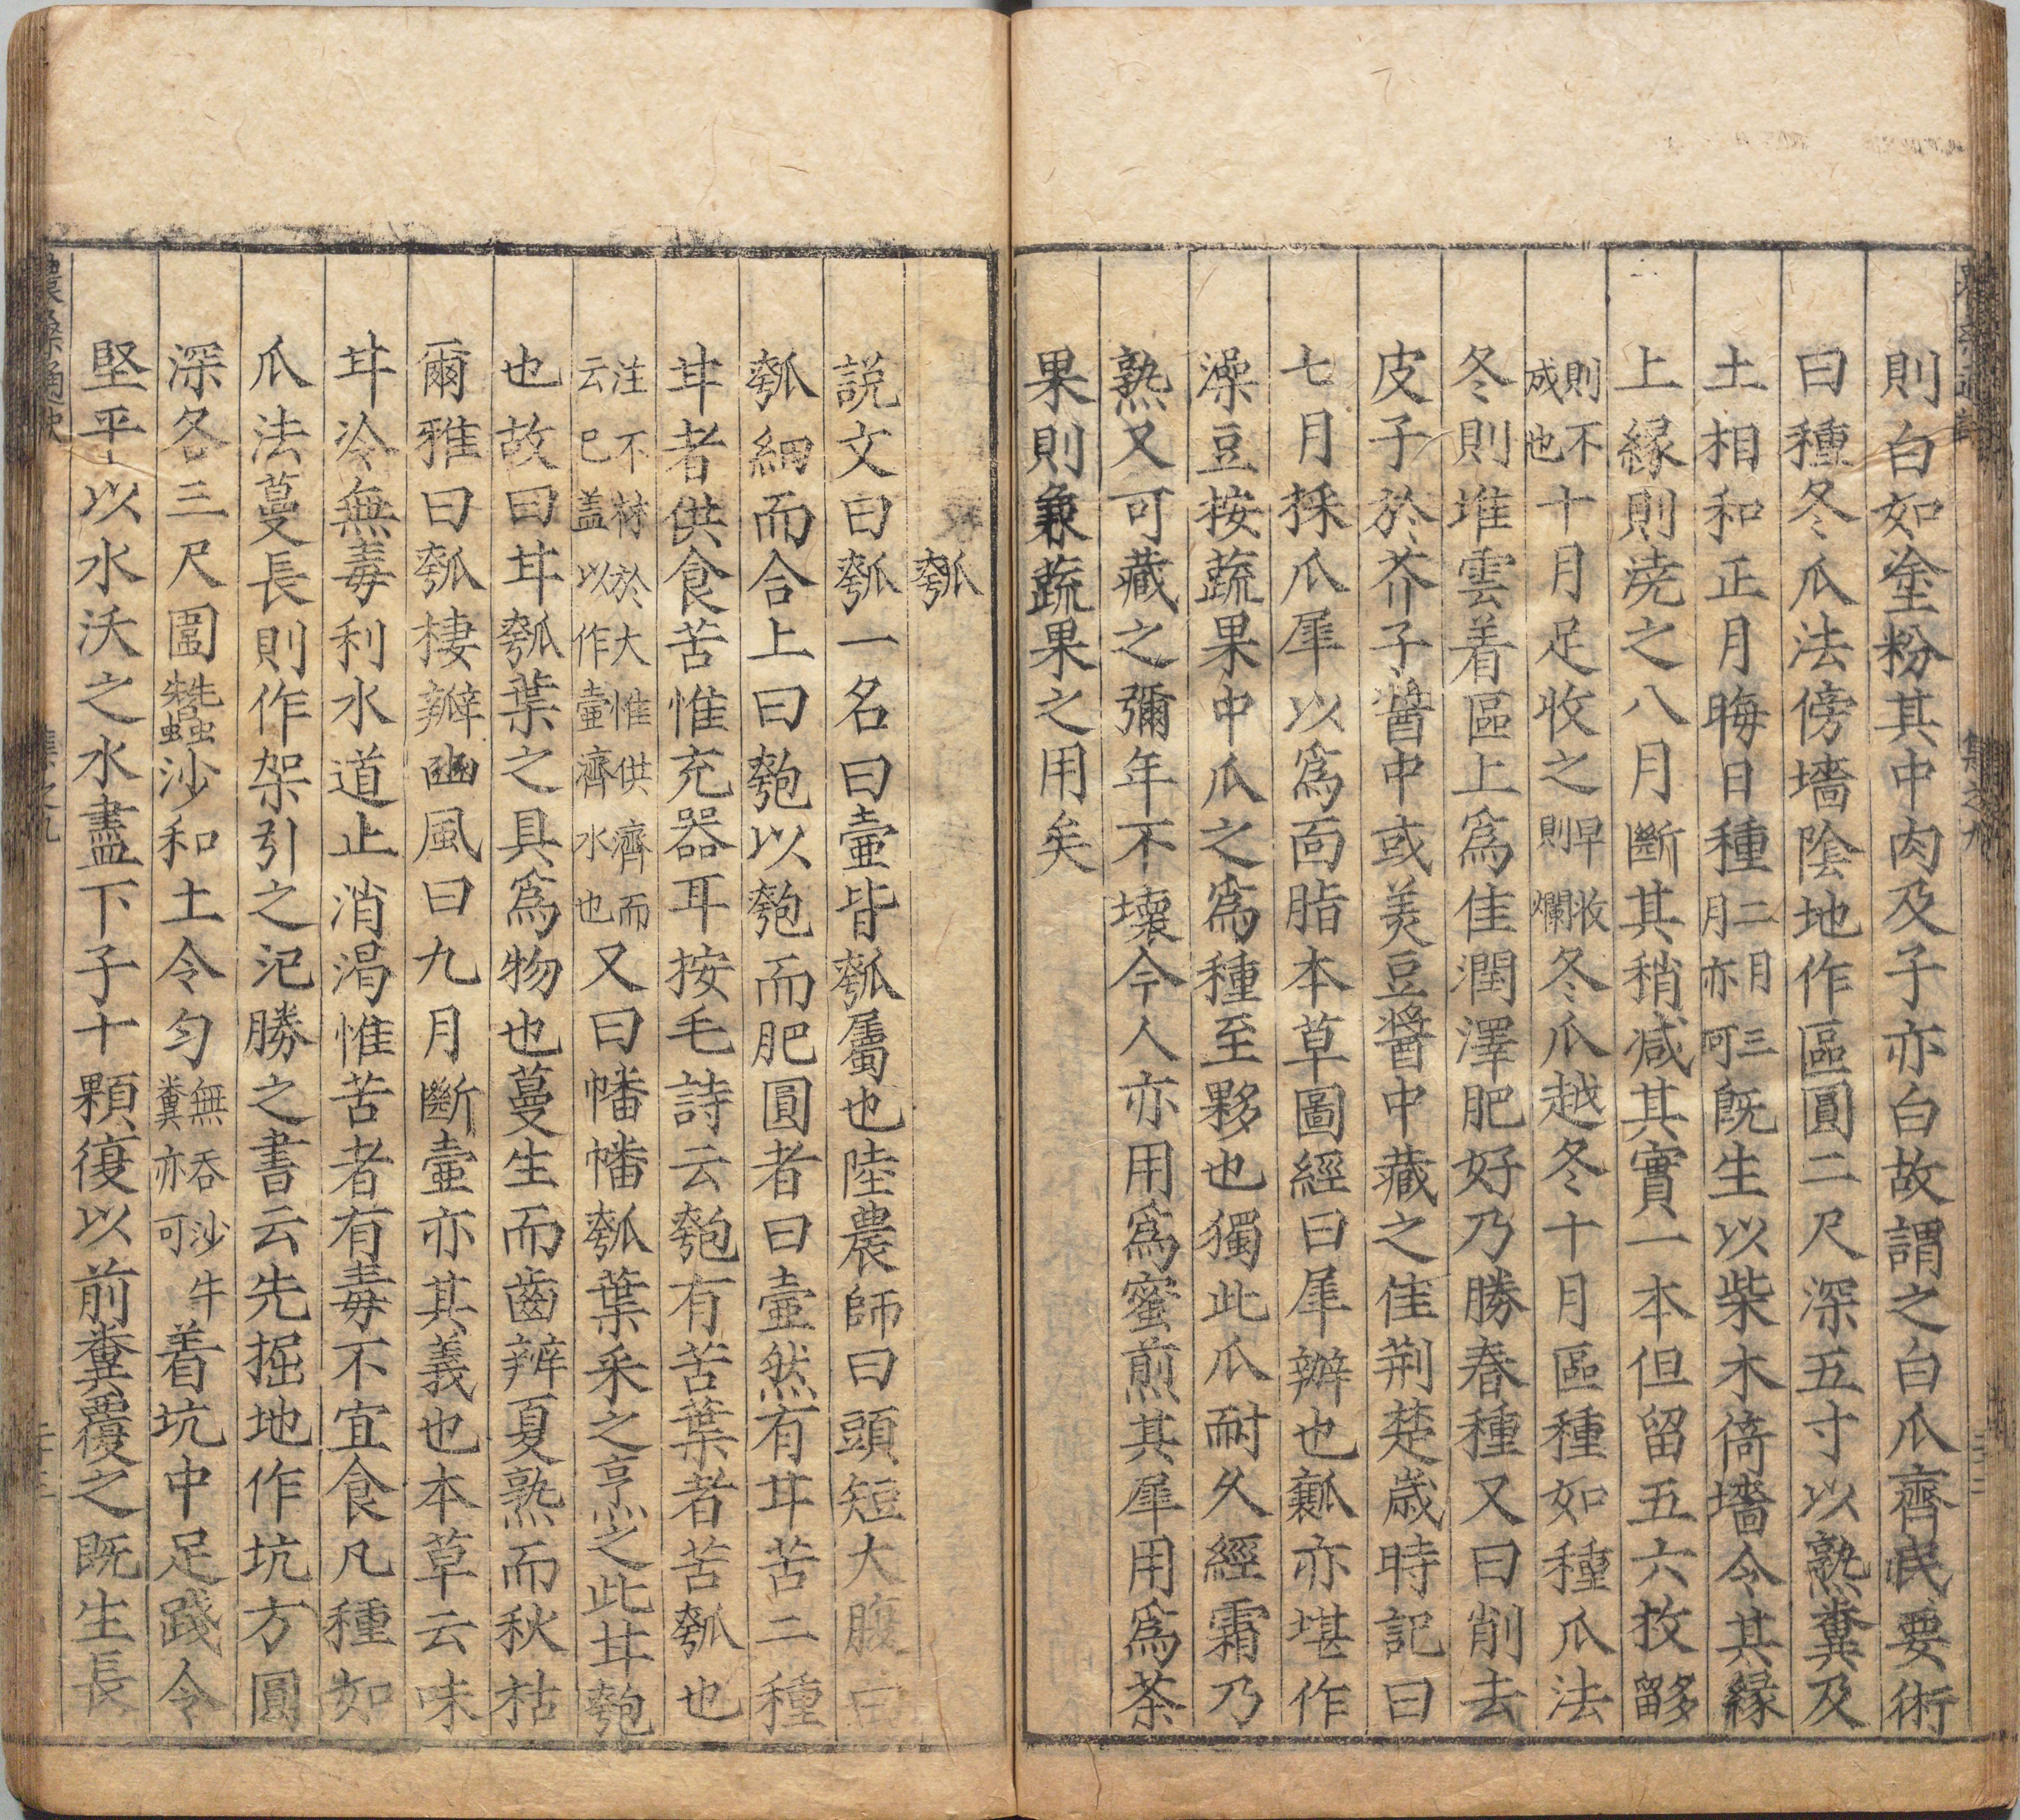 則白如塗粉其中肉及子亦白故謂之白爪齊民要術
曰種冬爪法傍墻陰地作區圓二尺深五寸以熟糞及
土相和正月晦日種二月三月亦可既生以柴木倚墻令其緣
上緣則澆之八月斷其稍减其實一本但留五六枚留多
則不成也十月足收之早收則爛冬爪越冬十月區種如種爪法
冬則堆雲着區上爲佳潤澤肥好乃勝春種又曰削去
皮子於芥子醬中或美豆醬中藏之佳荆楚歲時記曰
七月採爪犀以爲面脂本草圖經曰犀辧也瓤亦堪作
澡豆按蔬果中爪之爲種至夥也獨此爪耐久經霜乃
熟又可藏之彌年不壞今人亦用爲蜜煎其犀用爲茶
果則兼蔬果之用矣
瓠
説文曰瓠一名曰壷皆瓠屬也陸農師曰頭短大腹曰
瓠細而合上曰匏以匏而肥圓者曰壷然有甘苦二種
甘者供食苦惟充器耳按毛詩云匏有苦葉者苦瓠也
注不材於大惟供濟而云已盖以作壷濟水也又曰幡幡瓠葉采之亨之此甘匏
也故曰甘瓠葉之具爲物也蔓生而齒辨夏熟而秋枯
爾雅曰瓠棲辧豳風曰九月斷壷亦其義也本草云味
甘冷無毒利水道止消渴惟苦者有毒不宜食凡種如
爪法蔓長則作架引之汜勝之書云先掘地作坑方圓
深各三尺圊蠶沙和土令匀無吞沙牛糞亦可着坑中足踐令
堅平以水沃之水盡下子十顆復以前糞覆之既生長
集之九